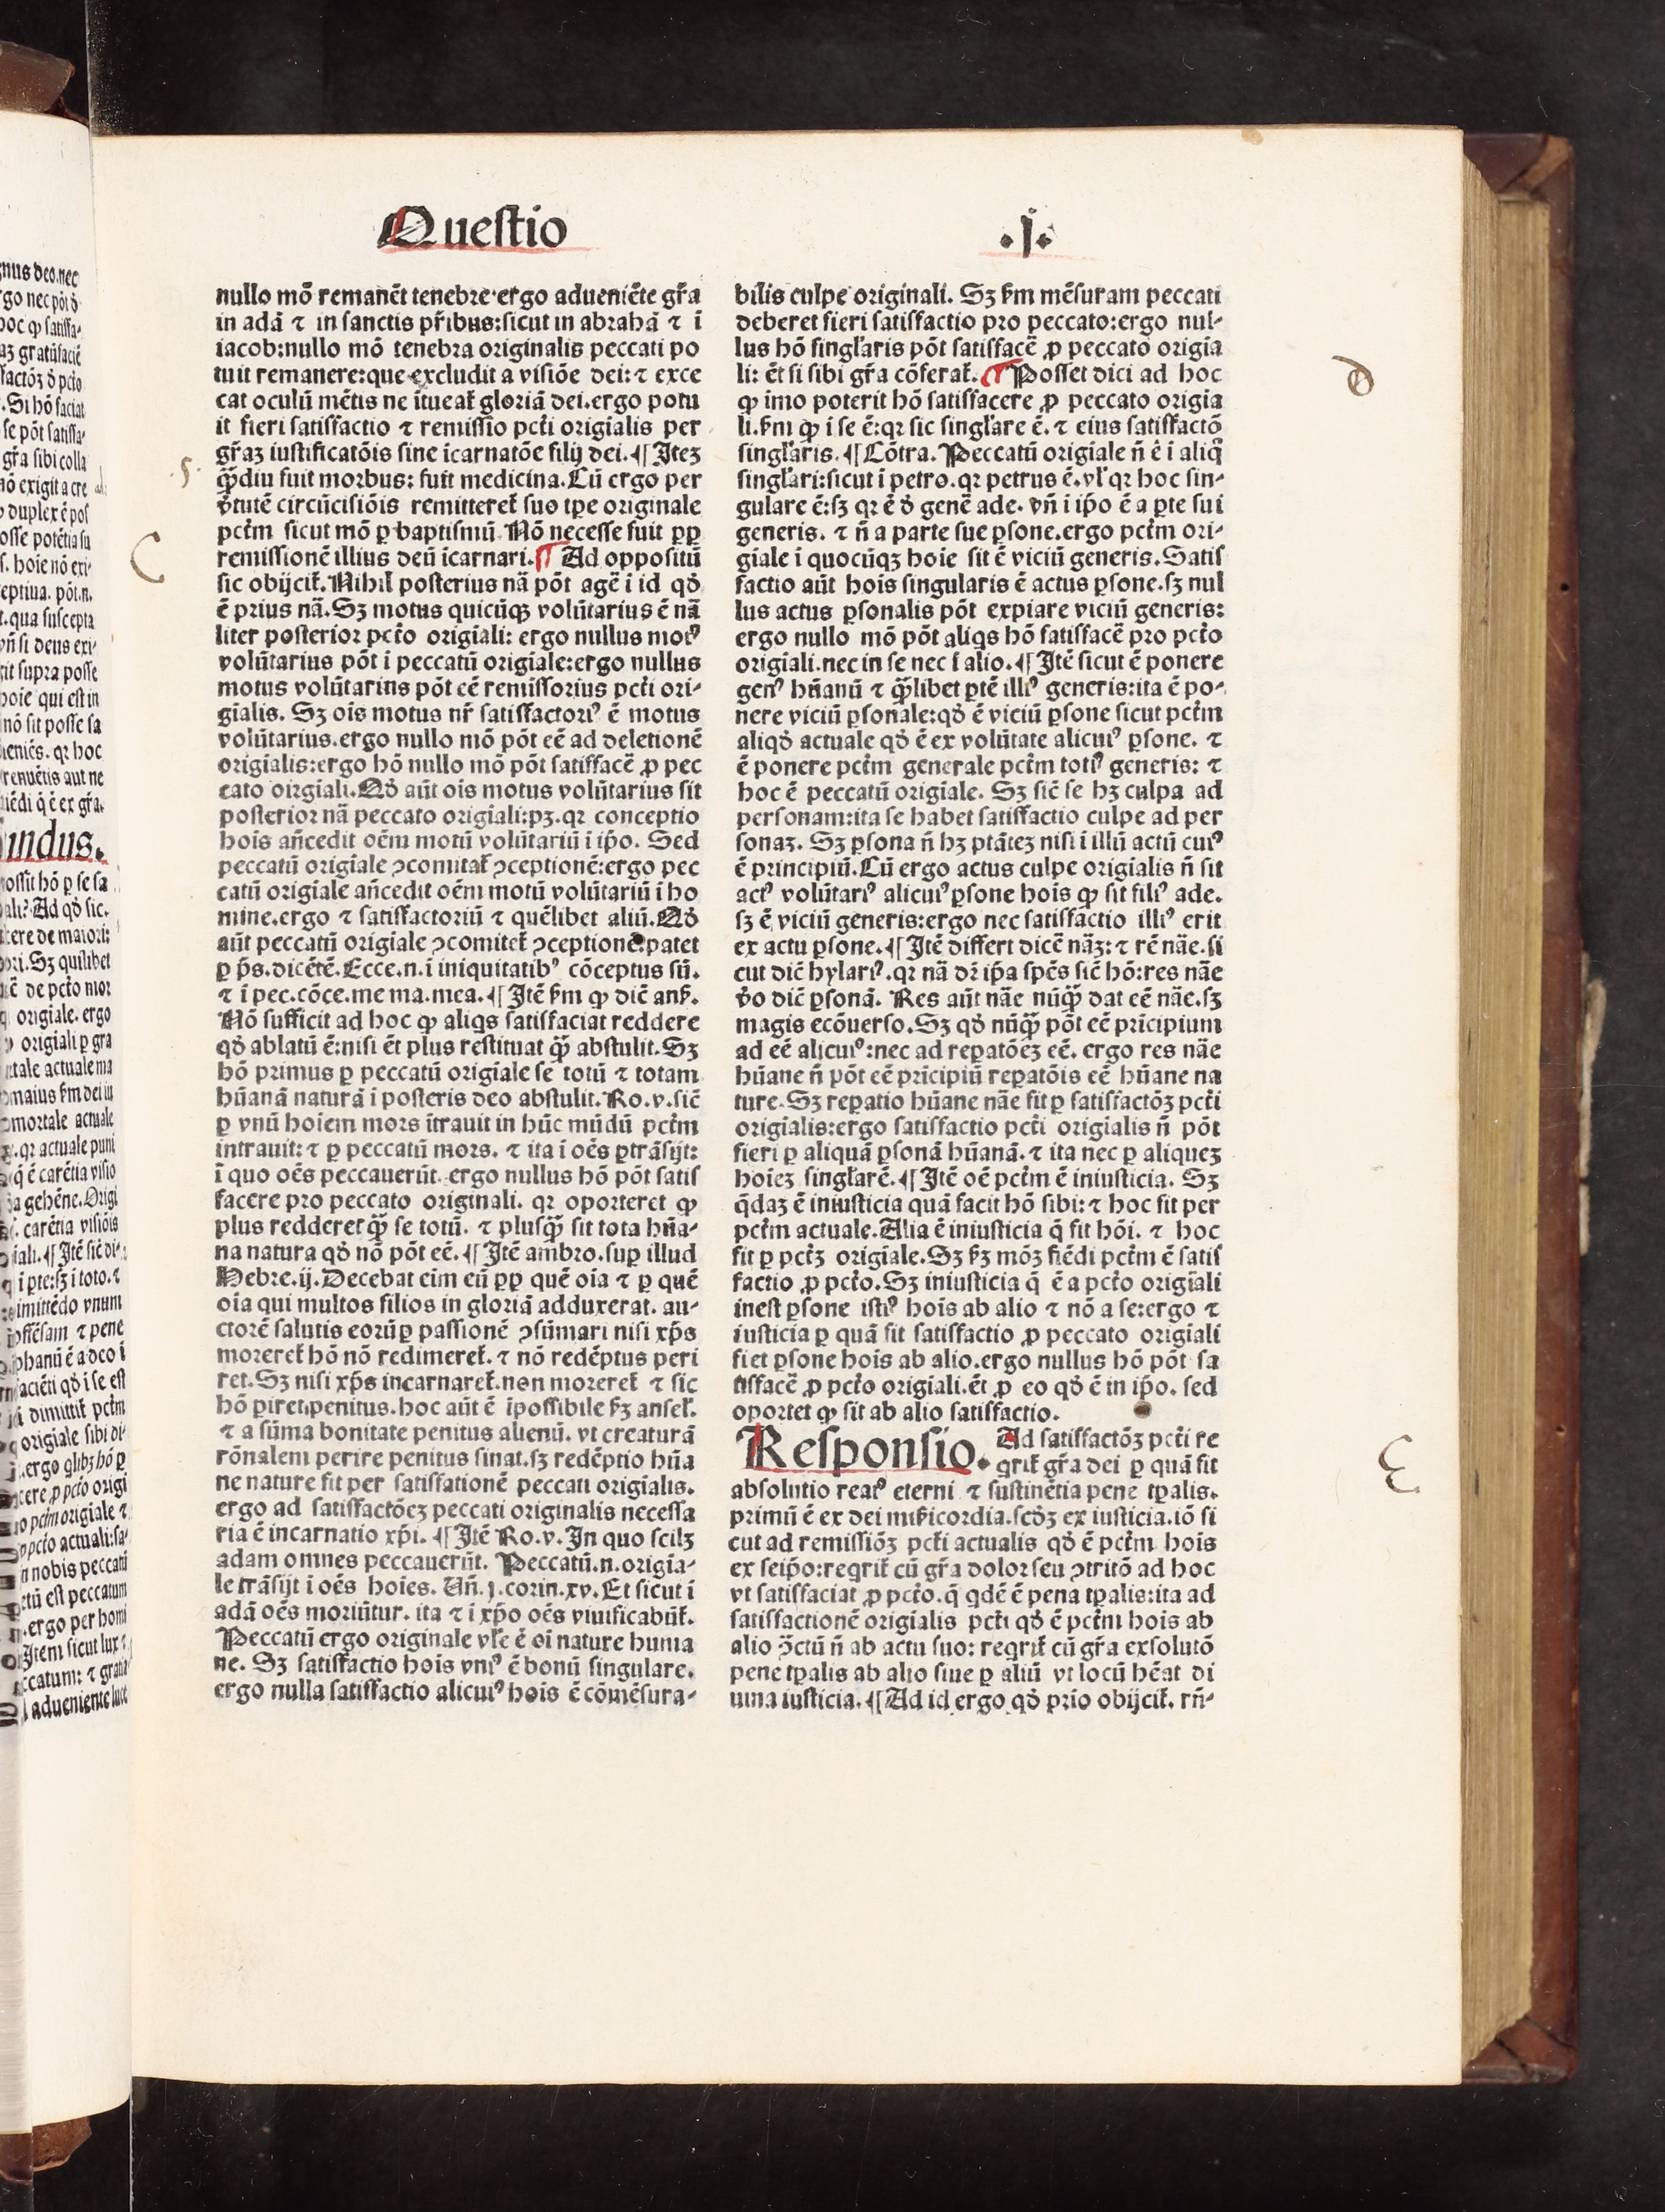 Questio
.j.
nullo mõ remanẽt tenebre·ergo adueniẽte gr̃a
in adã ⁊ in sanctis pr̃ibus:sicut in abrahã ⁊ ĩ
iacob:nullo mõ tenebra originalis peccati po
tuit remanere:que excludit a visiõe dei:⁊ exce
cat oculũ mẽtis ne ĩtueat᷑ gloriã dei.ergo potu
it fieri satisfactio ⁊ remissio pct̃i origĩalis per
gr̃aꝫ iustificatõis sine ĩcarnatõe filij dei.¶Iteꝫ
q̃ꝫdiu fuit morbus: fuit medicina.Cũ ergo per
v̾tutẽ circũcisiõis remitteret᷑ suo tꝑe originale
pct̃m sicut mõ ꝑ baptismũ. Nõ necesse fuit ꝓꝑ
remissionẽ illius deũ ĩcarnari.¶ Ad oppositũ
sic obijcit᷑. Nihil posterius nã põt agẽ ĩ id qď
ẽ prius nã. Sꝫ motus quicũqꝫ volũtarius ẽ nã
liter posterior pct̃o origĩali: ergo nullus motꝰ
volũtarius põt ĩ peccatũ origĩale:ergo nullus
motus volũtarius põt eẽ remissorius pct̃i ori-
gĩalis. Sꝫ oĩs motus nr̃ satisfactoriꝰ ẽ motus
volũtarius.ergo nullo mõ põt eẽ ad deletionẽ
origĩalis:ergo hõ nullo mõ põt satisfacẽ ꝓ pec
cato oirgĩali.Qď aũt oĩs motus volũtarius sit
posterior nã peccato origĩali:pꝫ.qꝛ conceptio
hoĩs añcedit oẽm motũ volũtariũ ĩ ip̃o. Sed
peccatũ origĩale ꝯcomitat᷑ ꝯceptionẽ:ergo pec
catũ origĩale añcedit oẽm motũ volũtariũ ĩ ho
mine.ergo ⁊ satisfactoriũ ⁊ quẽlibet aliũ.Qď
aũt peccatũ origĩale ꝯcomitet᷑ ꝯceptionẽ:patet
ꝑ p̃s.dicẽtẽ.Ecce.n.ĩ iniquitatibꝰ cõceptus sũ.
⁊ ĩ pec.cõce.me ma.mea.¶Itẽ ẜm ꝙ dic̃ anẜ.
Nõ sufficit ad hoc ꝙ aliqs satisfaciat reddere
qď ablatũ ẽ:nisi ẽt plus restituat q̃ꝫ abstulit.Sꝫ
hõ primus ꝑ peccatũ origĩale se totũ ⁊ totam
hũanã naturã ĩ posteris deo abstulit.Ro.v.sic̃
ꝑ vnũ hoĩem mors ĩtrauit in hũc mũdũ pct̃m
intrauit:⁊ ꝑ peccatũ mors. ⁊ ita ĩ oẽs ꝑtrãsijt:
ĩ quo oẽs peccauerũt.ergo nullus hõ põt satis
facere pro peccato originali. qꝛ oporteret ꝙ
plus redderet q̃ꝫ se totũ. ⁊ plusq̃ꝫ sit tota hũa-
na natura qď nõ põt eẽ.¶Itẽ ambro.suꝑ illud
Hebre.ij.Decebat eim eũ ꝓꝑ quẽ oĩa ⁊ ꝑ quẽ
oĩa qui multos filios in gloriã adduxerat. au-
ctorẽ salutis eorũ ꝑ passionẽ ꝯsũmari nisi xp̃s
moreret᷑ hõ nõ redimeret᷑. ⁊ nõ redẽptus peri
ret.Sꝫ nisi xp̃s incarnaret᷑.non moreret᷑ ⁊ sic
hõ ꝑiret penitus.hoc aũt ẽ ĩpossibile ẜꝫ ansel᷑.
⁊ a sũma bonitate penitus alienũ. vt creaturã
rõnalem perire penitus sinat.sꝫ redẽptio hũa
ne nature fit per satisfationẽ peccati origĩalis.
ergo ad satisfactõeꝫ peccati originalis necessa
ria ẽ incarnatio xp̃i.¶Itẽ Ro.v.In quo scilꝫ
adam omnes peccauerũt. Peccatũ.n.origĩa-
le trãsijt ĩ oẽs hoĩes. Uñ.j.corin.xv.Et sicut ĩ
adã oẽs moriũtur. ita ⁊ ĩ xp̃o oẽs viuificabũt᷑.
Peccatũ ergo originale vl̾e ẽ oĩ nature huma
ne. Sꝫ satisfactio hoĩs vniꝰ ẽ bonũ singulare.
ergo nulla satisfactio alicuiꝰ hoĩs ẽ cõmẽsura-
bilis culpe originali. Sꝫ ẜm mẽsuram peccati
deberet fieri satisfactio pro peccato:ergo nul-
lus hõ singl̾aris põt satisfacẽ ꝓ peccato origĩa
li: ẽt si sibi gr̃a cõferat᷑.¶Posset dici ad hoc
ꝙ imo poterit hõ satisfacere ꝓ peccato origĩa
li.ẜm ꝙ ĩ se ẽ:qꝛ sic singl̾are ẽ.⁊ eius satisfactõ
singl̾aris.¶Cõtra. Peccatũ origĩale ñ ẽ ĩ aliq̃
singl̾ari:sicut ĩ petro.qꝛ petrus ẽ.vl̾ qꝛ hoc sin-
gulare ẽ:sꝫ qꝛ ẽ ď genẽ ade. vñ ĩ ip̃o ẽ a ꝑte sui
generis. ⁊ ñ a parte sue ꝑsone.ergo pct̃m ori-
gĩale ĩ quocũqꝫ hoĩe sit ẽ viciũ generis.Satis
factio aũt hoĩs singularis ẽ actus ꝑsone.sꝫ nul
lus actus ꝑsonalis põt expiare viciũ generis:
ergo nullo mõ põt aliqs hõ satisfacẽ pro pct̃o
origĩali.nec in se nec ĩ alio.¶Itẽ sicut ẽ ponere
genꝰ hũanũ ⁊ q̃ꝫlibet ꝑtẽ illiꝰ generis:ita ẽ po-
nere viciũ ꝑsonale:qď ẽ viciũ ꝑsone sicut pct̃m
aliqď actuale qď ẽ ex volũtate alicuiꝰ ꝑsone. ⁊
ẽ ponere pct̃m generale pct̃m totiꝰ generis: ⁊
hoc ẽ peccatũ origĩale. Sꝫ sic̃ se hꝫ culpa ad
personam:ita se habet satisfactio culpe ad per
sonaꝫ. Sꝫ ꝑsona ñ hꝫ ptãteꝫ nisi ĩ illũ actũ cuiꝰ
ẽ principiũ.Cũ ergo actus culpe origĩalis ñ sit
actꝰ volũtariꝰ alicuiꝰ ꝑsone hoĩs ꝙ sit filiꝰ ade.
sꝫ ẽ viciũ generis:ergo nec satisfactio illiꝰ erit
ex actu ꝑsone.¶Itẽ differt dicẽ nãꝫ:⁊ rẽ nãe.si
cut dic̃ hylariꝰ.qꝛ nã dꝛ̃ ip̃a sp̃es sic̃ hõ:res nãe
v̾o dic̃ ꝑsonã. Res aũt nãe nũq̃ꝫ dat eẽ nãe.sꝫ
magis ecõuerso.Sꝫ qď nũq̃ꝫ põt eẽ prĩcipium
ad eẽ alicuiꝰ:nec ad reꝑatõeꝫ eẽ. ergo res nãe
hũane ñ põt eẽ prĩcipiũ reꝑatõis eẽ hũane na
ture.Sꝫ reꝑatio hũane nãe fit ꝑ satisfactõꝫ pct̃i
origĩalis:ergo satisfactio pct̃i origĩalis ñ põt
fieri ꝑ aliquã ꝑsonã hũanã.⁊ ita nec ꝑ aliqueꝫ
hoĩeꝫ singl̾arẽ.¶Itẽ oẽ pct̃m ẽ iniusticia. Sꝫ
q̃daꝫ ẽ iniusticia quã facit hõ sibi:⁊ hoc fit per
pct̃m actuale.Alia ẽ iniusticia q̃ fit hõi. ⁊ hoc
fit ꝑ pct̃ꝫ origĩale.Sꝫ ẜꝫ mõꝫ fiẽdi pct̃m ẽ satis
factio ꝓ pct̃o.Sꝫ iniusticia q̃ ẽ a pct̃o origĩali
inest ꝑsone istiꝰ hoĩs ab alio ⁊ nõ a se:ergo ⁊
iusticia ꝑ quã fit satisfactio ꝓ peccato origĩali
fiet ꝑsone hoĩs ab alio.ergo nullus hõ põt sa
tisfacẽ ꝓ pct̃o origĩali.ẽt ꝓ eo qď ẽ in ip̃o. sed
oportet ꝙ sit ab alio satisfactio.
Responsio. Ad satisfactõꝫ pct̃i re
qrit᷑ gr̃a dei ꝑ quã fit
absolutio reatꝰ eterni ⁊ sustinẽtia pene tꝑalis.
primũ ẽ ex dei mĩẜicordia.scďꝫ ex iusticia.iõ si
cut ad remissiõꝫ pct̃i actualis qď ẽ pct̃m hoĩs
ex seip̃o:reqrit᷑ cũ gr̃a dolor seu ꝯtritõ ad hoc
vt satisfaciat ꝓ pct̃o.q̃ qdẽ ẽ pena tꝑalis:ita ad
satisfactionẽ origĩalis pct̃i qď ẽ pct̃m hoĩs ab
alio ꝯ̃ctũ ñ ab actu suo: reqrit᷑ cũ gr̃a exsolutõ
pene tꝑalis ab alio siue ꝑ aliũ vt locũ hẽat di
uina iusticia.¶Ad id ergo qď prĩo obijcit᷑. rñ-